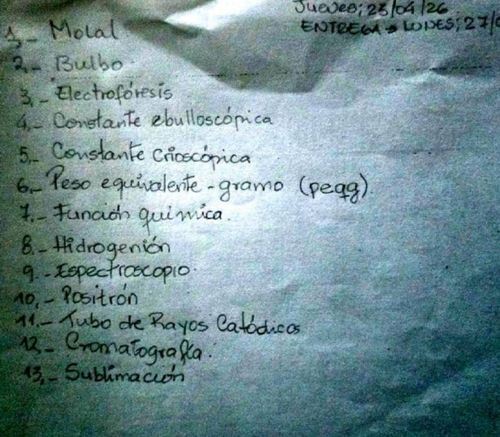 Jueves; 23/04/26
ENTREGA → LUNES; 27/0
1,- Molal
2,- Bulbo
3,- Electrofóresis
4,- Constante ebulloscópica
5,- Constante Crioscópica
6,- Peso equivalente-gramo (peqg)
7,- Función química.
8,- Hidrogenión
9,- Espectroscopio.
10,- Positrón
11,- Tubo de Rayos Catódicos
12,- Cromatografía.
13,- Sublimación